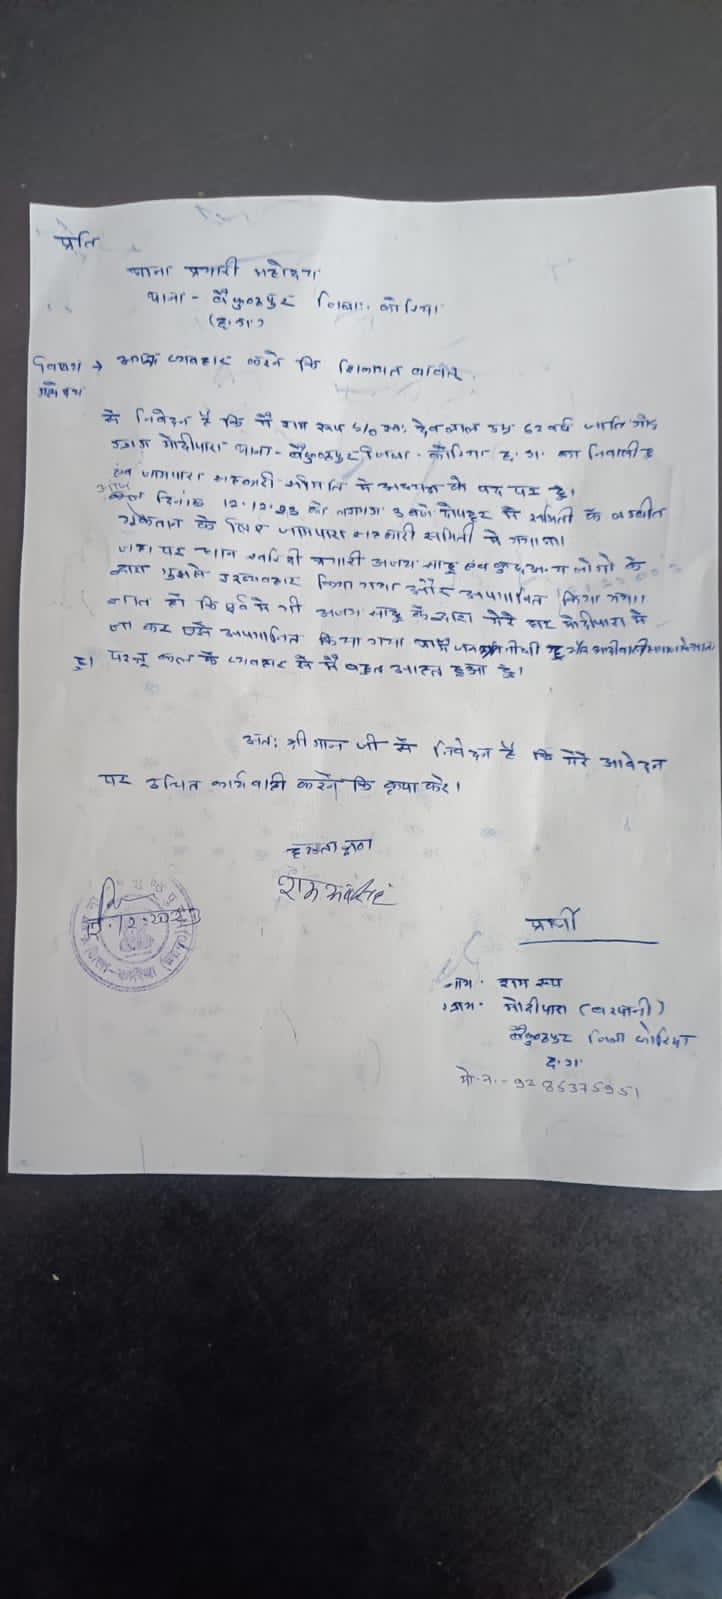 प्रति
थाना प्रभारी महोदय
थाना - बैकुण्ठपुर जिला - कोरिया
(छ.ग.)
विषय → व्यवहार करने कि शिकायत बाबत्
महोदय
मै निवेदन है कि मैं राम रूप s/o स्व. देवलाल उम्र 62 वर्ष जाति गोंड
ग्राम मोदीपारा थाना - बैकुण्ठपुर जिला - कोरिया छ.ग. का निवासी हूं
एवं जामपारा सहकारी समिति में अध्यक्ष के पद पर हूं।
कल दिनांक 12.12.23 को लगभग 3 बजे दोपहर में समिति के
के लिए जामपारा सहकारी समिति में गया था
जहा पर धान खरिदी प्रभारी अजय साहू एवं कुछ अन्य लोगो के
द्वारा मुझसे दुरव्यवहार किया गया और अपमानित किया गया।
ज्ञात हो कि पूर्व मे भी अजय साहू के द्वारा मेरे घर मोदीपारा मे
जा कर अपमानित किया गया था मै हू और आदीवासी
हू। परन्तु कल के व्यवहार से मैं बहुत आहत हुआ हू।
अतः श्रीमान जी से निवेदन है कि मेरे आवेदन
पर उचित कार्यवाही करने कि कृपा करे।
हस्ताक्षर
प्रार्थी
नाम - राम रूप
ग्राम - मोदीपारा
बैकुण्ठपुर जिला कोरिया
छ.ग.
मो.न. - 9285375951